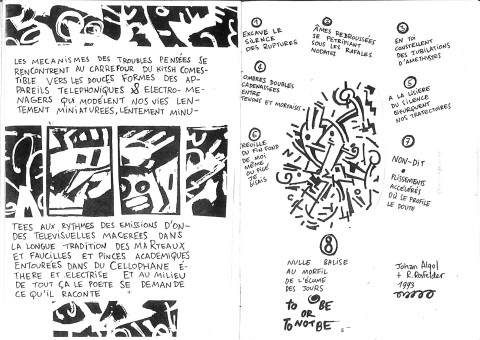 LES MECANISMES DES TROUBLES PENSÉES SE
RENCONTRENT AU CARREFOUR DU KITSH COMES-
TIBLE VERS LES DOUCES FORMES DES AP-
PAREILS TELEPHONIQUES & ELECTRO-ME-
NAGERS QUI MODÈLENT NOS VIES LEN-
TEMENT MINIATUREES, LENTEMENT MINU-
TEES AUX RYTHMES DES EMISSIONS D'ON-
DES TELEVISUELLES MACEREES DANS
LA LONGUE TRADITION DES MARTEAUX
ET FAUCILLES ET PINCES ACADEMIQUES
ENTOUREES DANS DU CELLOPHANE É-
THERE ET ELECTRISE ET AU MILIEU
DE TOUT ÇA LE POETE SE DEMANDE
CE QU'IL RACONTE
1
EXCAVE LE
SILENCE
DES RUPTURES
2
ÂMES REBROUSSÉES
SE PETRIFIANT
SOUS LES RAFALES
3
EN TOI
CONSTELLENT
DES JUBILATIONS
D'AMETHYSTES
4
OMBRES DOUBLES
CADENASSÉES
ENTRE
TENONS ET MORTAISES
5
A LA LISIERE
DU SILENCE
BIFURQUENT
NOS TRAJECTOIRES
6
DU FIN FOND
DE MOI
MÊME
OU FIGÉ
JE
GISAIS
7
NON-DIT
PLISSEMENTS
ACCÉLÉRÉS
OÙ SE PROFILE
LE DOUTE
8
NULLE BALISE
AU MORFIL
DE L'ÉCUME
DES JOURS
TO BE
OR
TO NOT BE
1993